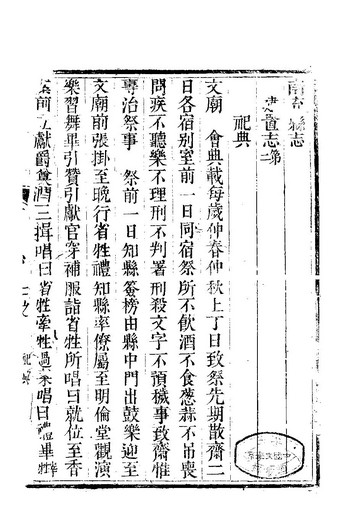 南 縣志
建置志 第二
祀典
文廟 會典載每歲仲春仲秋上丁日致祭先期散齋二
日各宿別室前一日同宿祭所不飲酒不食葱蒜不吊喪
問疾不聽樂不理刑不判署刑殺文字不預穢事致齋惟
專治祭事 祭前一日知縣簽榜由縣中門出鼓樂迎至
文廟前張掛至晚行省牲禮知縣率僚屬至明倫堂觀演
樂習舞畢引贊引獻官穿補服詣省牲所唱曰就位至香
案前立獻爵奠酒三揖唱曰省牲牽牲過來唱曰 畢
祀典